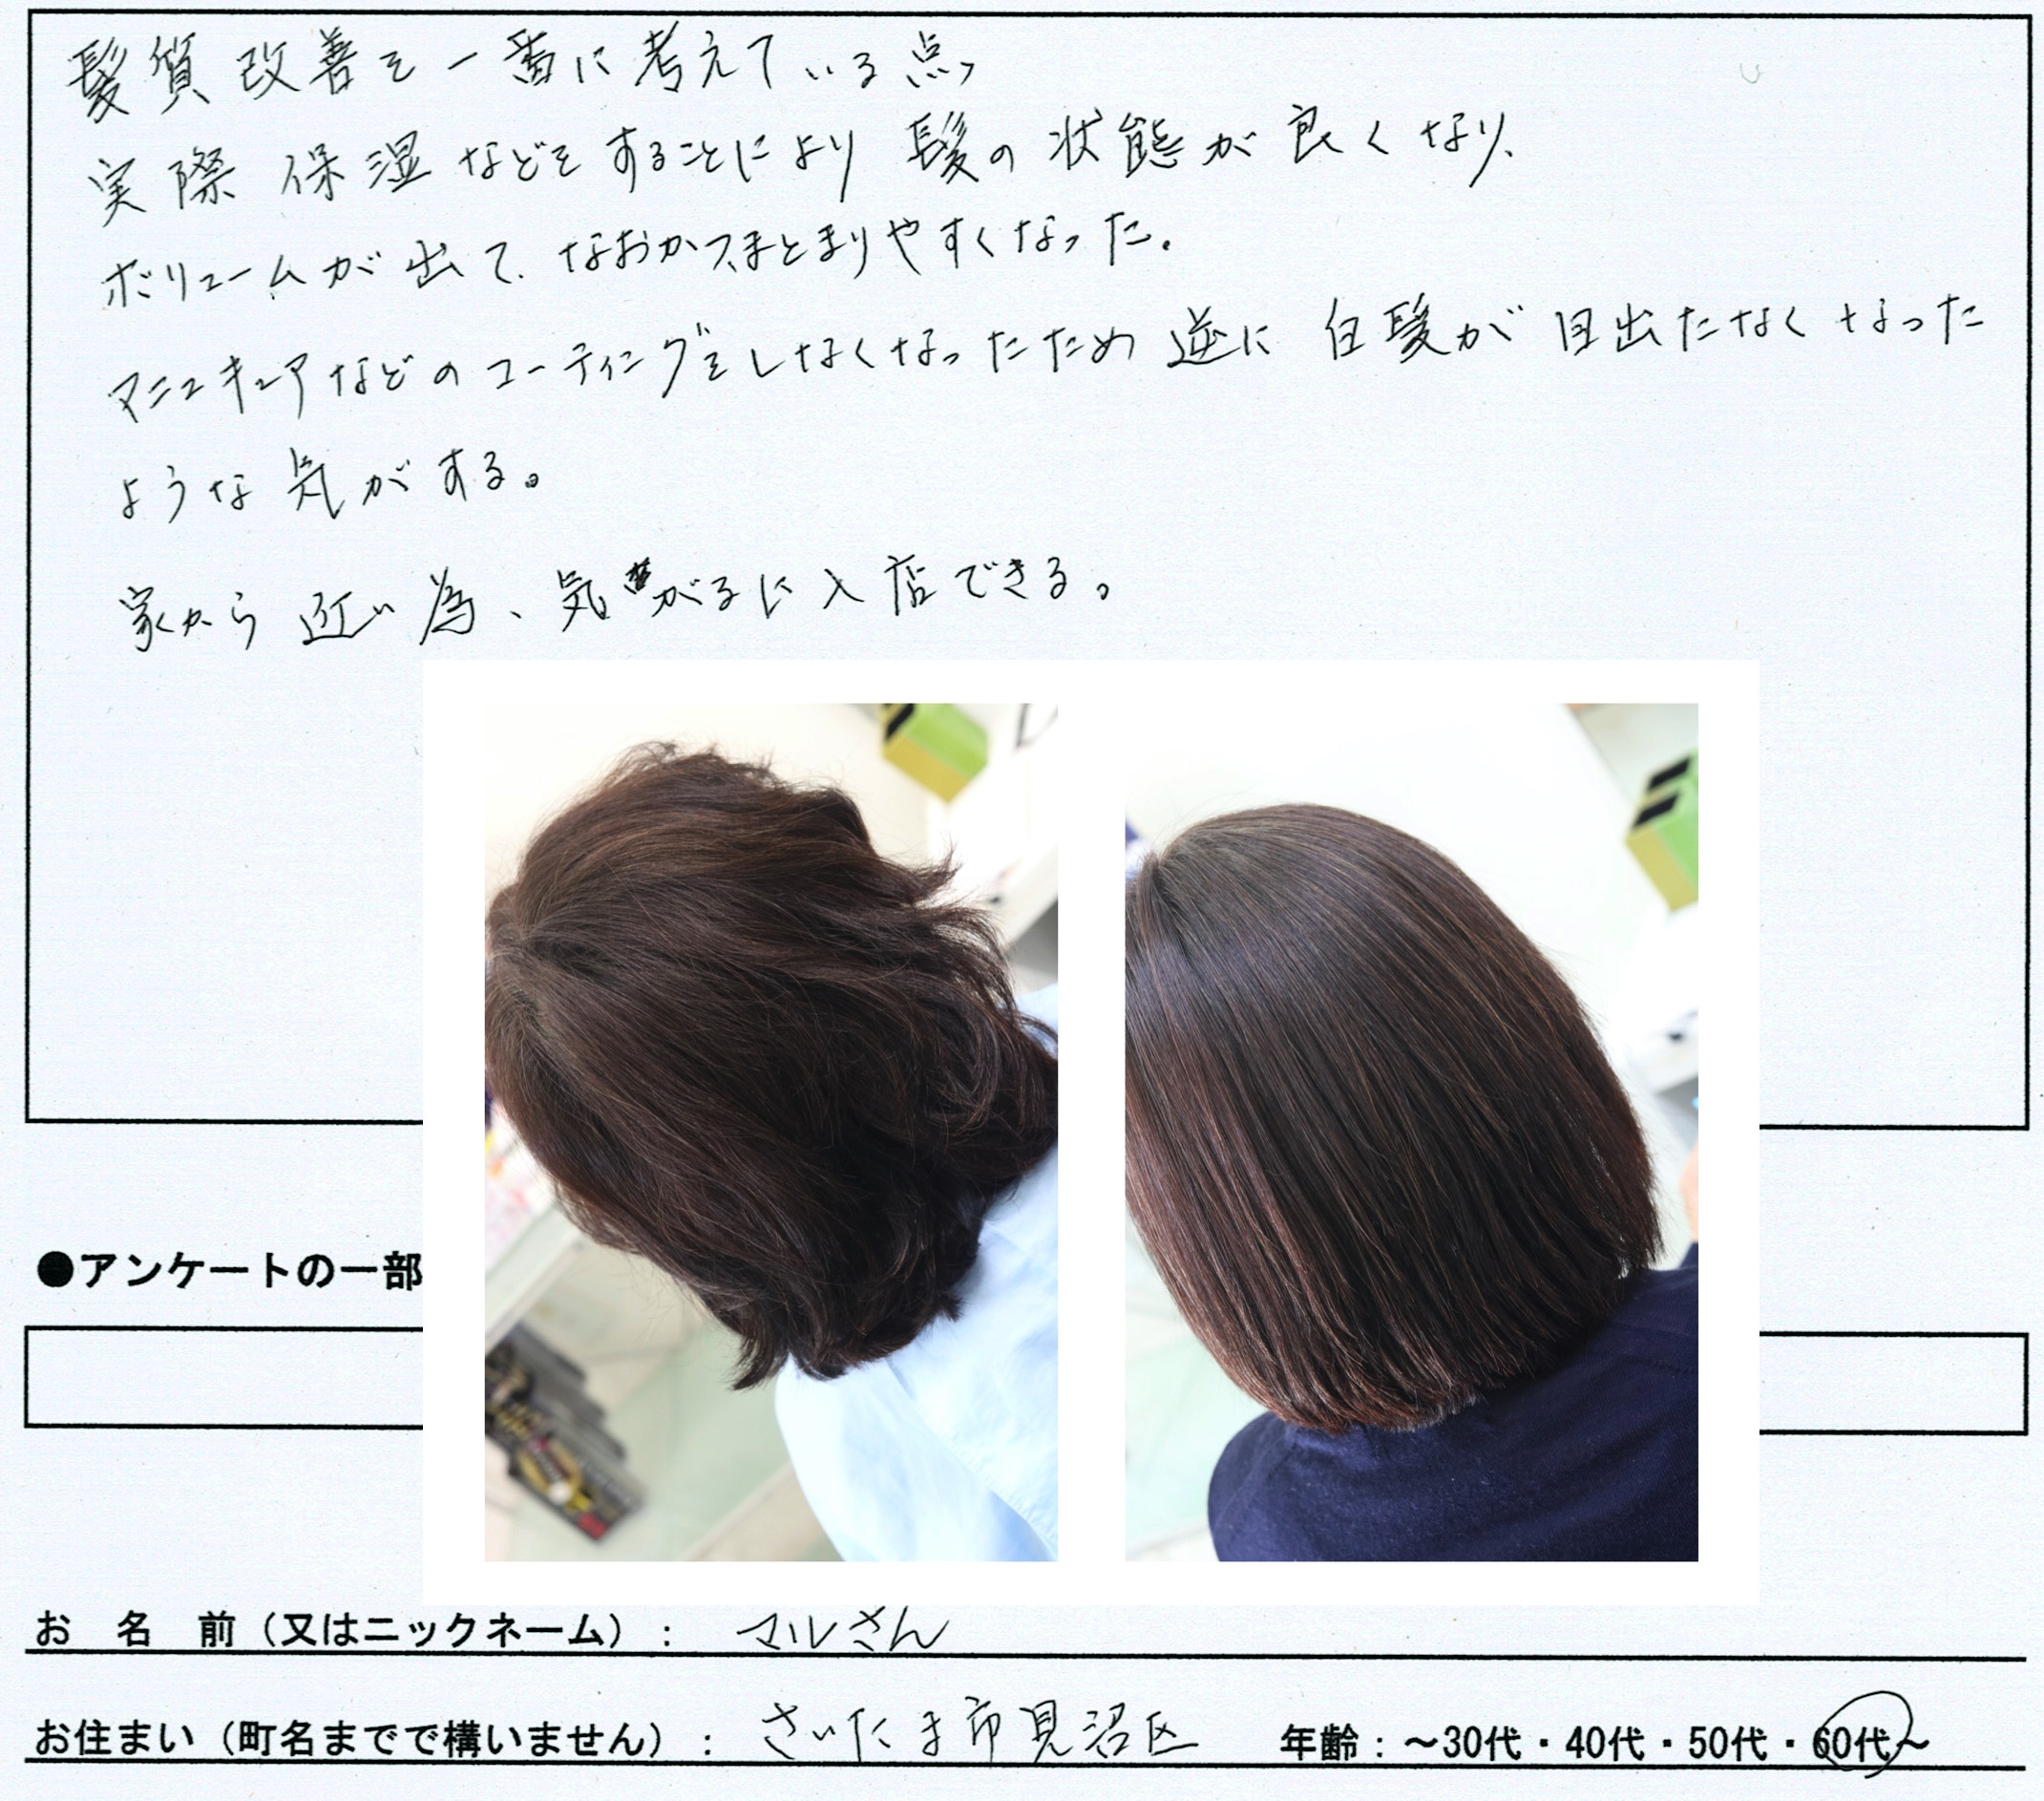 髪質改善を一番に考えている点、
実際保湿などをすることにより髪の状態が良くなり、
ボリュームが出て、なおかつまとまりやすくなった。
マニュキュアなどのコーティングをしなくなったため逆に白髪が目出たなくなった
ような気がする。
家から近い為、気がるに入店できる。
●アンケートの一部
お名前（又はニックネーム）： マルさん
お住まい（町名までで構いません）： さいたま市見沼区 年齢：～30代・40代・50代・60代～